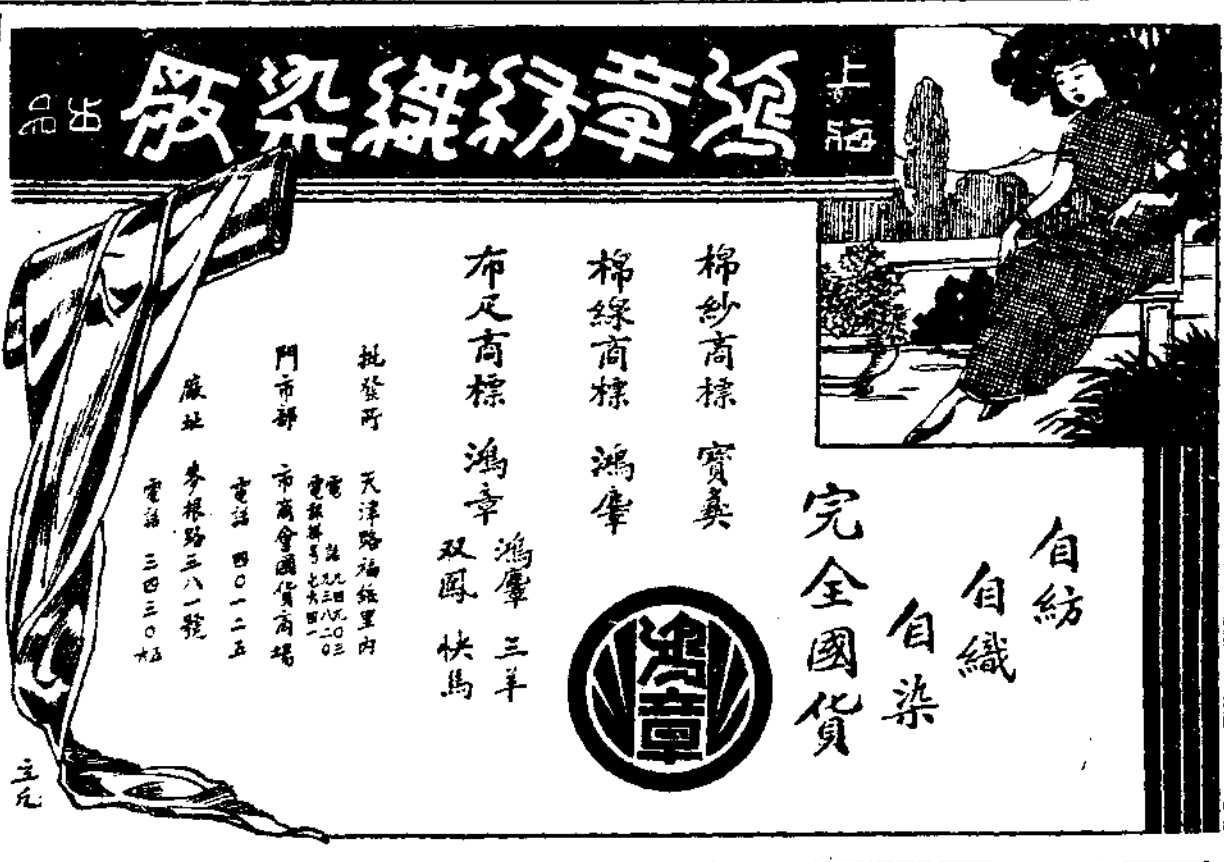 上海
鴻章紡織染廠
出品
自紡
自織
自染
完全國貨
鴻章
棉紗商標 寶彝
棉線商標 鴻麞
布疋商標 鴻章
鴻麞 三羊
双鳳 快馬
批發所 天津路福綏里內
電話 九四九〇三
九三八二〇
電報掛号七六四一
門市部 市商會國貨商場
電話 四〇一二五
廠址 麥根路三八一號
電話 三四三〇五六